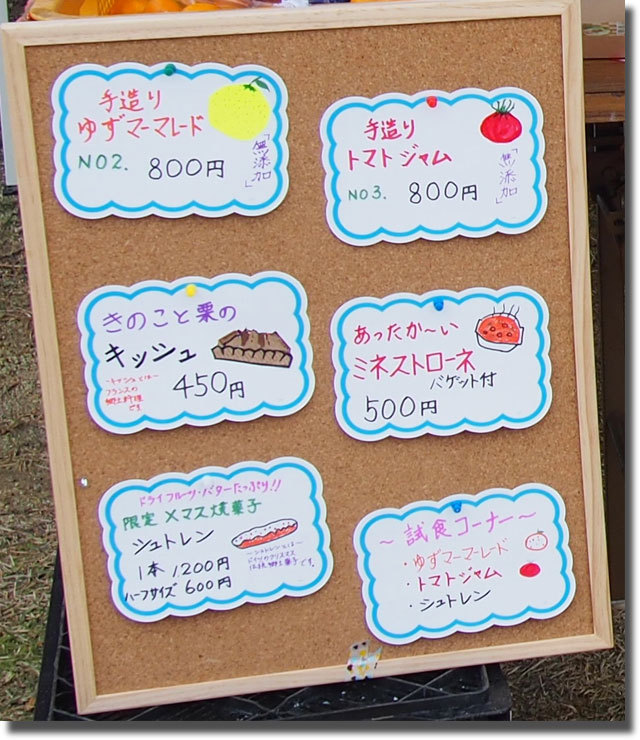 手造り
ゆずマーマレード
NO2. 800円
「無添加」
手造り
トマトジャム
NO3. 800円
「無添加」
きのこと栗の
キッシュ
～キッシュとは～
フランスの
郷土料理
です
450円
あったか～い
ミネストローネ
バゲット付
500円
ドライフルーツ・バターたっぷり!!
限定 Xマス焼菓子
シュトレン
1本 1200円
ハーフサイズ 600円
～シュトレンとは～
ドイツのクリスマス
菓子です。
～試食コーナー～
・ゆずマーマレード
・トマトジャム
・シュトレン